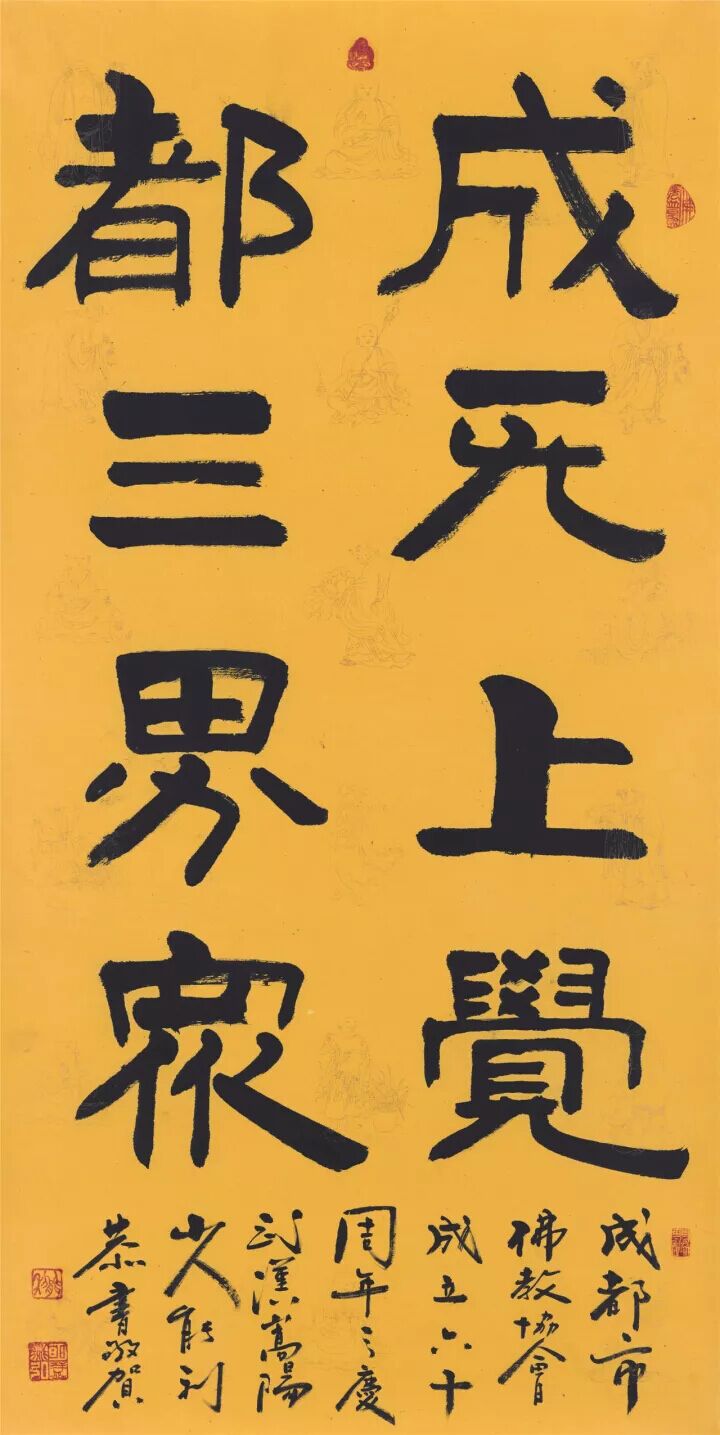 成无上覺
都三界眾
成都市
佛教協會
成立六十
周年之慶
武漢嵩陽
山人能利
恭書敬賀